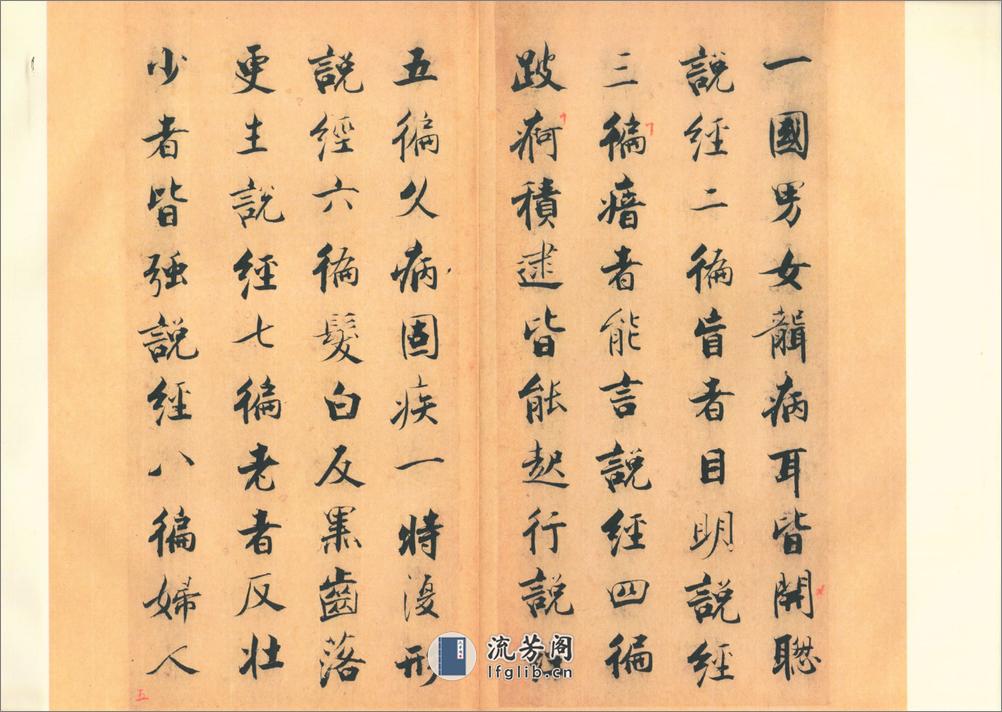 一國男女聾病耳皆開聰
說經二徧盲者目明說經
三徧瘖者能言說經四徧
跛痾積逮皆能起行說
五徧久病固疾一時復形
說經六徧髮白反黑齒落
更生說經七徧老者反壯
少者皆強說經八徧婦人
五
流芳阁
lfglib.cn